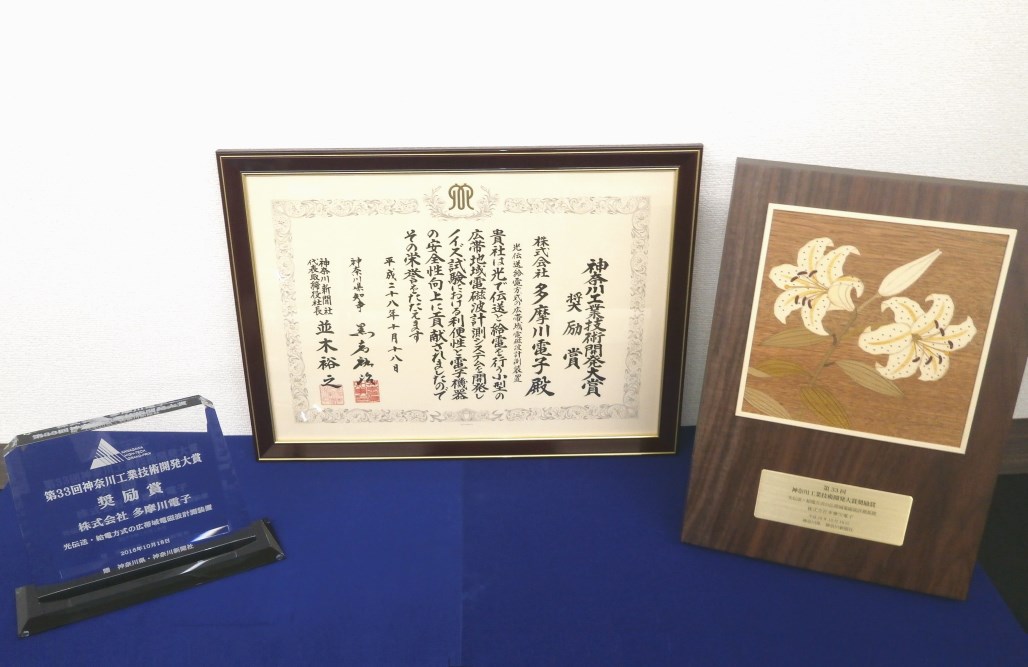 第33回神奈川工業技術開発大賞
奨励賞
株式会社 多摩川電子
光伝送・給電方式の広帯域電磁波計測装置
2016年10月18日
神奈川県・神奈川新聞社
神奈川工業技術開発大賞
奨励賞
株式会社 多摩川電子殿
光伝送給電方式の広帯域電磁波計測装置
貴社は光で伝送と給電を行う小型の
広帯地域電磁波計測システムを開発し
ノイズ試験における利便性と電子機器
の安全性向上に貢献されましたので
その栄誉をたたえます
平成二十八年十月十八日
神奈川県知事
神奈川新聞社
代表取締役社長 並木裕之
第33回
神奈川工業技術開発大賞奨励賞